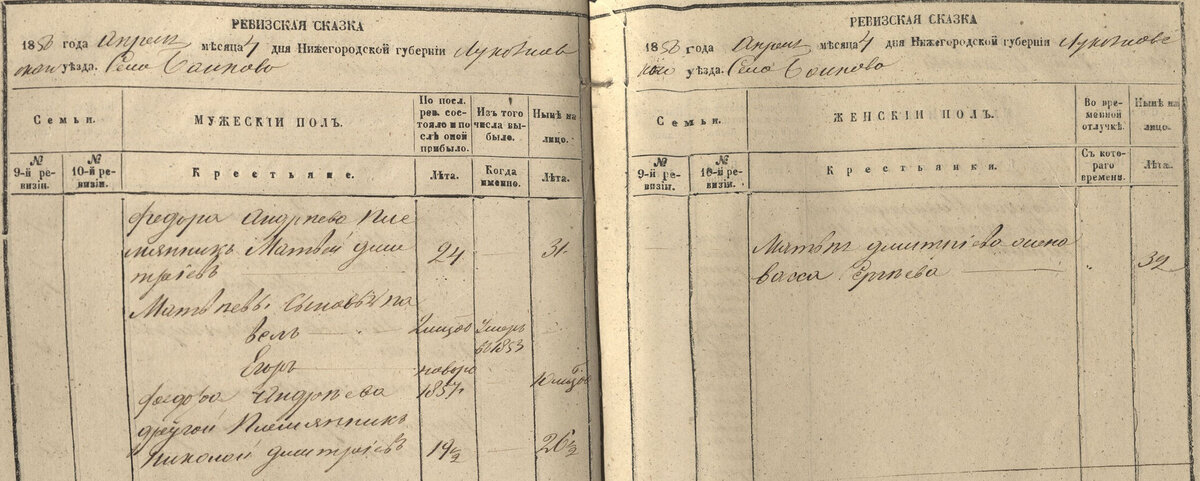 РЕВИЗСКАЯ СКАЗКА
1858 года Апреля мѣсяца 4 дня Нижегородской губерніи Лукоянов
скаго уѣзда. Село
Семьи.
МУЖЕСКІЙ ПОЛЪ.
По посл. рев. состояло и послѣ оной прибыло.
Изъ того числа выбыло.
Нынѣ на лицо.
№ 9-й ревизіи.
№ 10-й ревизіи.
Крестьяне.
Лѣта.
Когда именно.
Лѣта.
Федора Андрѣева пле
мянникъ Матвей Дми 24 — 31
тріевъ
Матвѣевы сыновья Па
велъ 2 умеръ
въ 1853
Егоръ новоро
Федора Андрѣева 1857
другой племянникъ
Николай Дмитріевъ 19½ 26½
РЕВИЗСКАЯ СКАЗКА
1858 года Апреля мѣсяца 4 дня Нижегородской губерніи Лукоянов
уѣзда. Село
Семьи.
ЖЕНСКІЙ ПОЛЪ.
Во временной отлучкѣ.
Нынѣ на лицо.
№ 9-й ревизіи.
№ 10-й ревизіи.
Крестьянки.
Съ котораго времени.
Лѣта.
Матвѣя Дмитріева жена
Васса Сергѣева 32